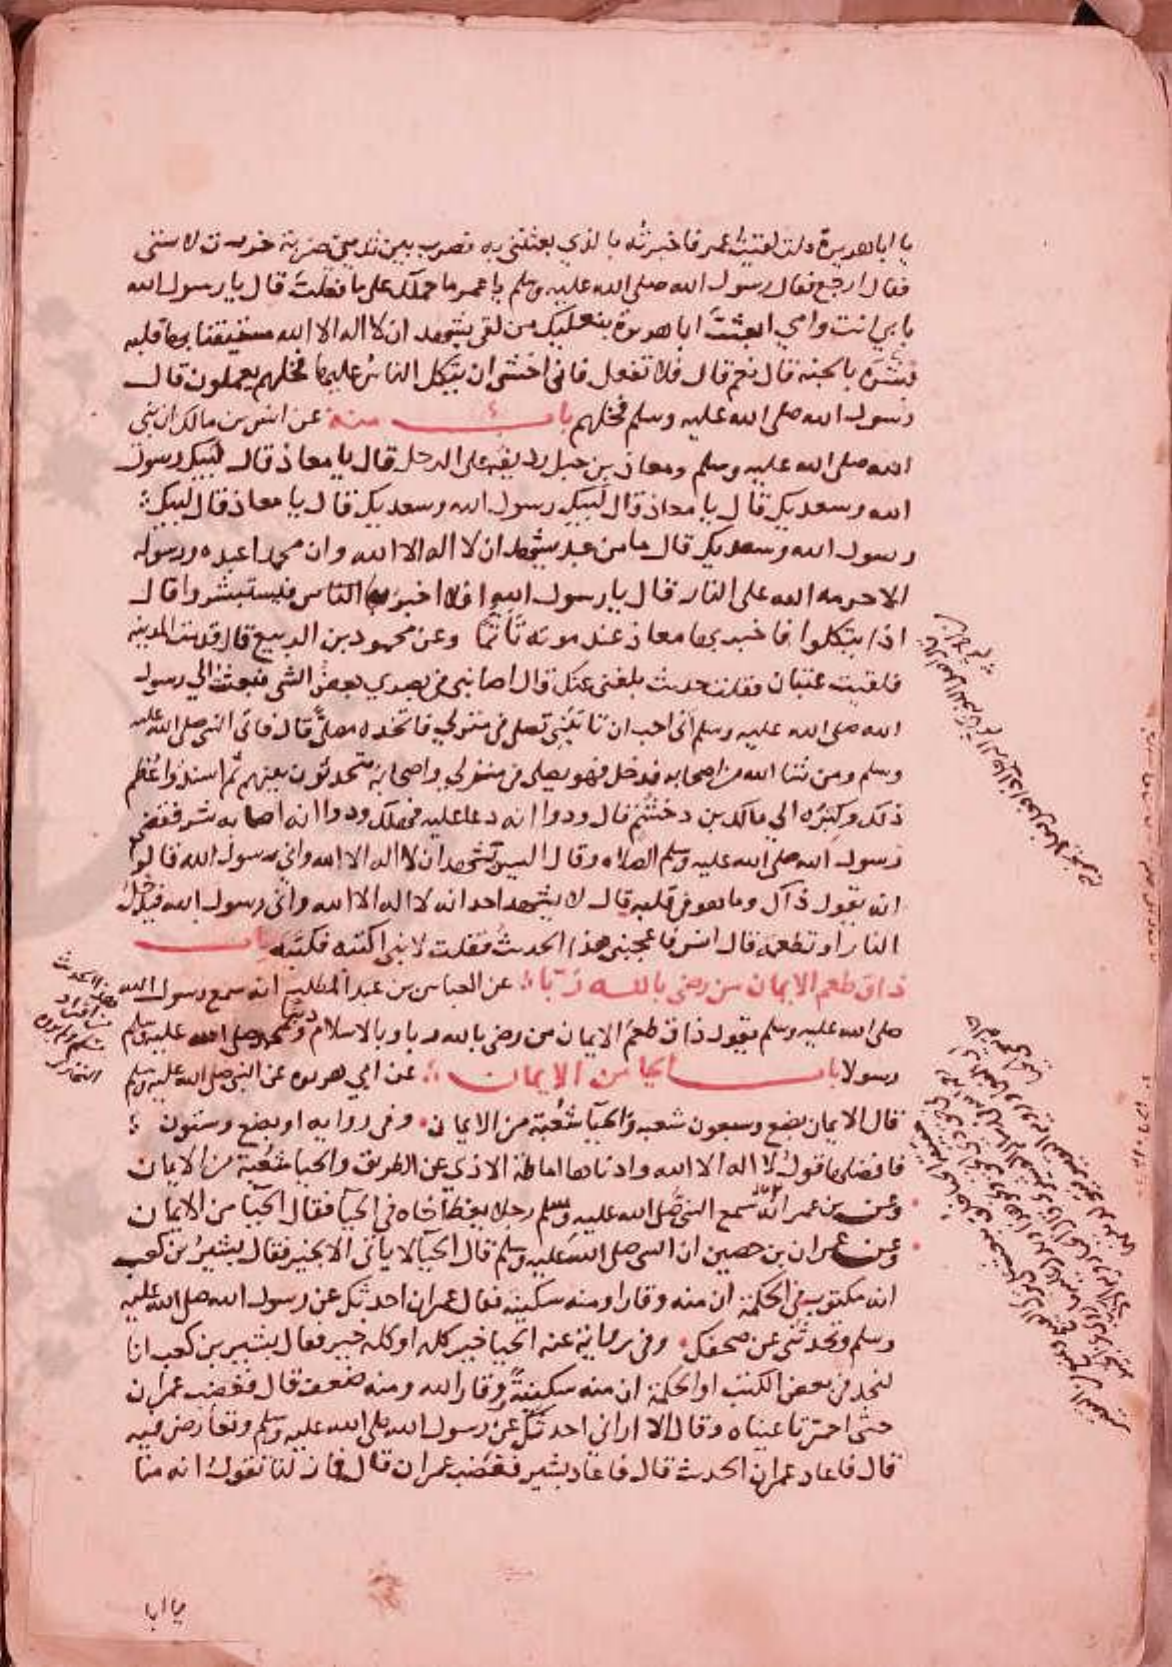 يا ابا هريرة قلت لقيت عمر فاخبرته بالذي بعثتني به فضرب بين ثديي ضربة خررت لاستي
فقال ارجع فقال رسول الله صلى الله عليه وسلم يا عمر ما حملك على ما فعلت قال يا رسول الله
بابي انت وامي ابعثت ابا هريرة بنعليك من لقي يشهد ان لا اله الا الله مستيقنا بها قلبه
بشره بالجنة قال نعم قال فلا تفعل فاني اخشى ان يتكل الناس عليها فخلهم يعملون قال
رسول الله صلى الله عليه وسلم فخلهم باب منه عن انس بن مالك ان نبي
الله صلى الله عليه وسلم ومعاذ بن جبل رديفه على الرحل قال يا معاذ قال لبيك رسول
الله وسعديك قال يا معاذ قال لبيك رسول الله وسعديك قال يا معاذ قال لبيك
رسول الله وسعديك قال ما من عبد يشهد ان لا اله الا الله وان محمدا عبده ورسوله
الا حرمه الله على النار قال يا رسول الله افلا اخبر بها الناس فيستبشروا قال
اذا يتكلوا فاخبر بها معاذ عند موته تأثما وعن محمود بن الربيع قال قدمت المدينة
فلقيت عتبان فقلت حديث بلغني عنك قال اصابني في بصري بعض الشي فبعثت الى رسول
الله صلى الله عليه وسلم اني احب ان تاتيني تصلي في منزلي فاتخذه مصلى قال فاتى النبي صلى الله عليه
وسلم ومن شا الله من اصحابه فدخل فهو يصلي في منزلي واصحابه يتحدثون بينهم ثم اسندوا عظم
ذلك وكبره الى مالك بن دخشم قال ودوا انه دعا عليه فهلك ودوا انه اصابه شر فقضى
رسول الله صلى الله عليه وسلم الصلاة وقال اليس يشهد ان لا اله الا الله واني رسول الله قالوا
انه يقول ذاك وما هو في قلبه قال لا يشهد احد انه لا اله الا الله واني رسول الله فيدخل
النار او تطعمه قال انس فاعجبني هذا الحديث فقلت لابني اكتبه فكتبه باب
ذاق طعم الايمان من رضي بالله ربا عن العباس بن عبد المطلب انه سمع رسول الله
صلى الله عليه وسلم يقول ذاق طعم الايمان من رضي بالله ربا وبالاسلام دينا وبمحمد صلى الله عليه وسلم
رسولا باب الحيا من الايمان عن ابي هريرة عن النبي صلى الله عليه وسلم
قال الايمان بضع وسبعون شعبة والحيا شعبة من الايمان وفي رواية او بضع وستون
فافضلها قول لا اله الا الله وادناها اماطة الاذى عن الطريق والحيا شعبة من الايمان
وعن بن عمر انه سمع النبي صلى الله عليه وسلم رجلا يعظ اخاه في الحيا فقال الحيا من الايمان
وعن عمران بن حصين ان النبي صلى الله عليه وسلم قال الحيا لا ياتي الا بخير فقال بشير بن كعب
انه مكتوب في الحكمة ان منه وقارا ومنه سكينة فقال عمران احدثك عن رسول الله صلى الله عليه
وسلم وتحدثني عن صحفك وفي رواية عنه الحيا خير كله او كله خير فقال بشير بن كعب انا
لنجد في بعض الكتب او الحكمة ان منه سكينة ووقارا لله ومنه ضعف قال فغضب عمران
حتى احمرتا عيناه وقال الا اراني احدثك عن رسول الله صلى الله عليه وسلم وتعارض فيه
قال فاعاد عمران الحديث قال فاعاد بشير فغضب عمران قال فما زلنا نقول انه منا
يا ابا